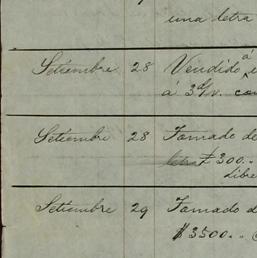 una letra
Setiembre 28 Vendido á
á 3 d/v. con
Setiembre 28 Tomado de
letra £ 300..
Libre
Setiembre 29 Tomado d
$ 3500..